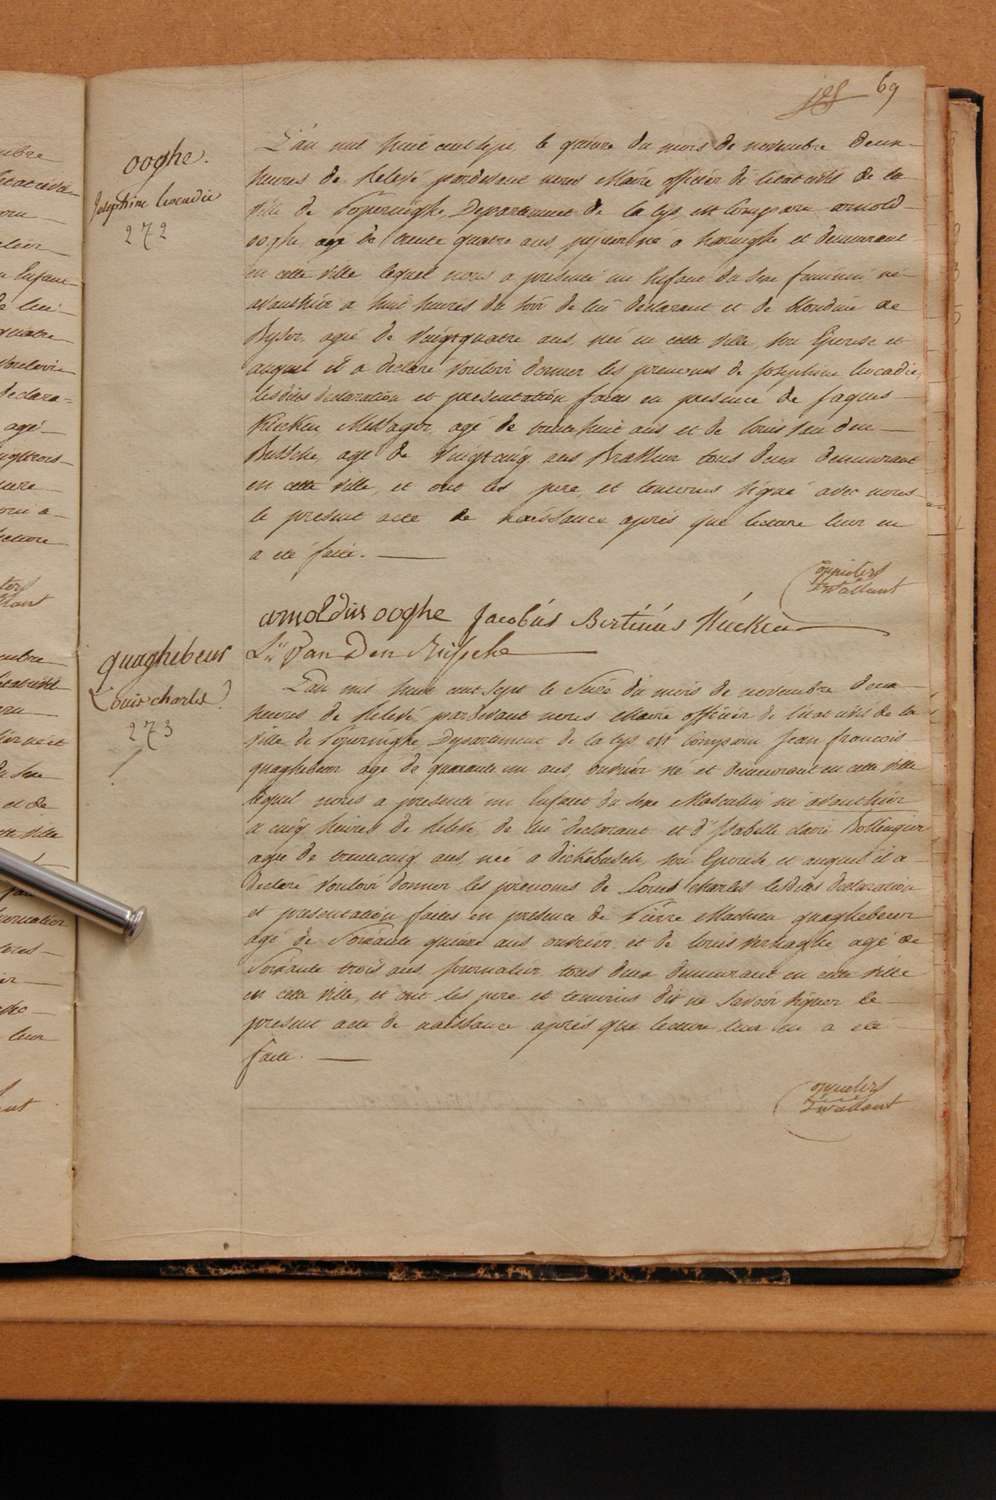 69
ooghe.
Josephine Leocadie
272
L'an mil huit cent sept le quinze du mois de novembre deux
heures de relevé pardevant nous Maire officier de l'état civil de la
ville de Poperinghe, Departement de la lys, est comparu arnold
ooghe agé de trente quatre ans, né a haringhe et demeurant
en cette ville lequel nous a presenté un Enfant du sexe feminin né
avanthier a huit heures du soir de lui declarant et de Blondine de
agée de vingtquatre ans, née en cette ville, son Epouse et
auquel il a declaré vouloir donner les prenoms de Josephine Leocadie,
lesdites declaration et presentation faites en presence de jaques
Kiecken Messager, agé de trente huit ans et de louis van den
Bussche, agé de vingtcinq ans Brasseur tous deux demeurant
en cette ville, et ont les pere et temoins signé avec nous
le present acte de naissance après que lecture leur en
a eté faite.
arnoldus ooghe Jacobus Bertinus Kiecken
Ls Van Den Bussche
quaghebeur
Louis charles
273
L'an mil huit cent sept le seize du mois de novembre deux
heures de relevé, pardevant nous Maire officier de l'état civil de la
ville de Poperinghe, Departement de la lys est comparu Jean francois
quaghebeur agé de quarante un ans, ouvrier né et demeurant en cette ville
lequel nous a presenté un Enfant du sexe Masculin né avanthier
a cinq heures de relevé, de lui declarant et d'Isabelle claire Bollengier
agée de trentecinq ans, née a dickebusch, son Epouse et auquel il a
declaré vouloir donner les prenoms de Louis charles lesdites declaration
et presentation faites en presence de Pierre Mathieu quaghebeur
agé de soixante quinze ans ouvrier, et de louis verhaeghe agé de
soixante trois ans, journalier tous deux demeurant en cette ville
en cette ville, et ont les pere et temoins dit ne savoir signer le
present acte de naissance après que lecture leur en a eté
faite.